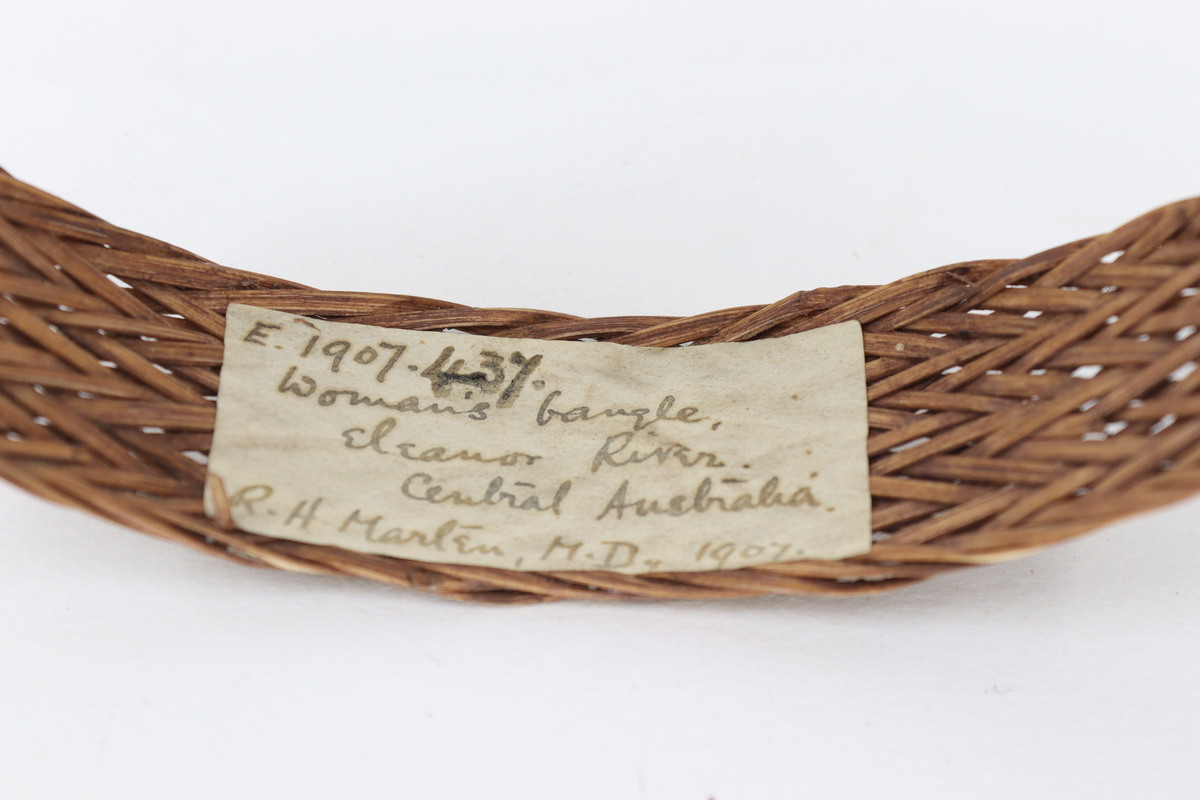 E. 1907. 437.
Woman's bangle,
Eleanor River.
Central Australia.
R. H. Marten, M.D., 1907.